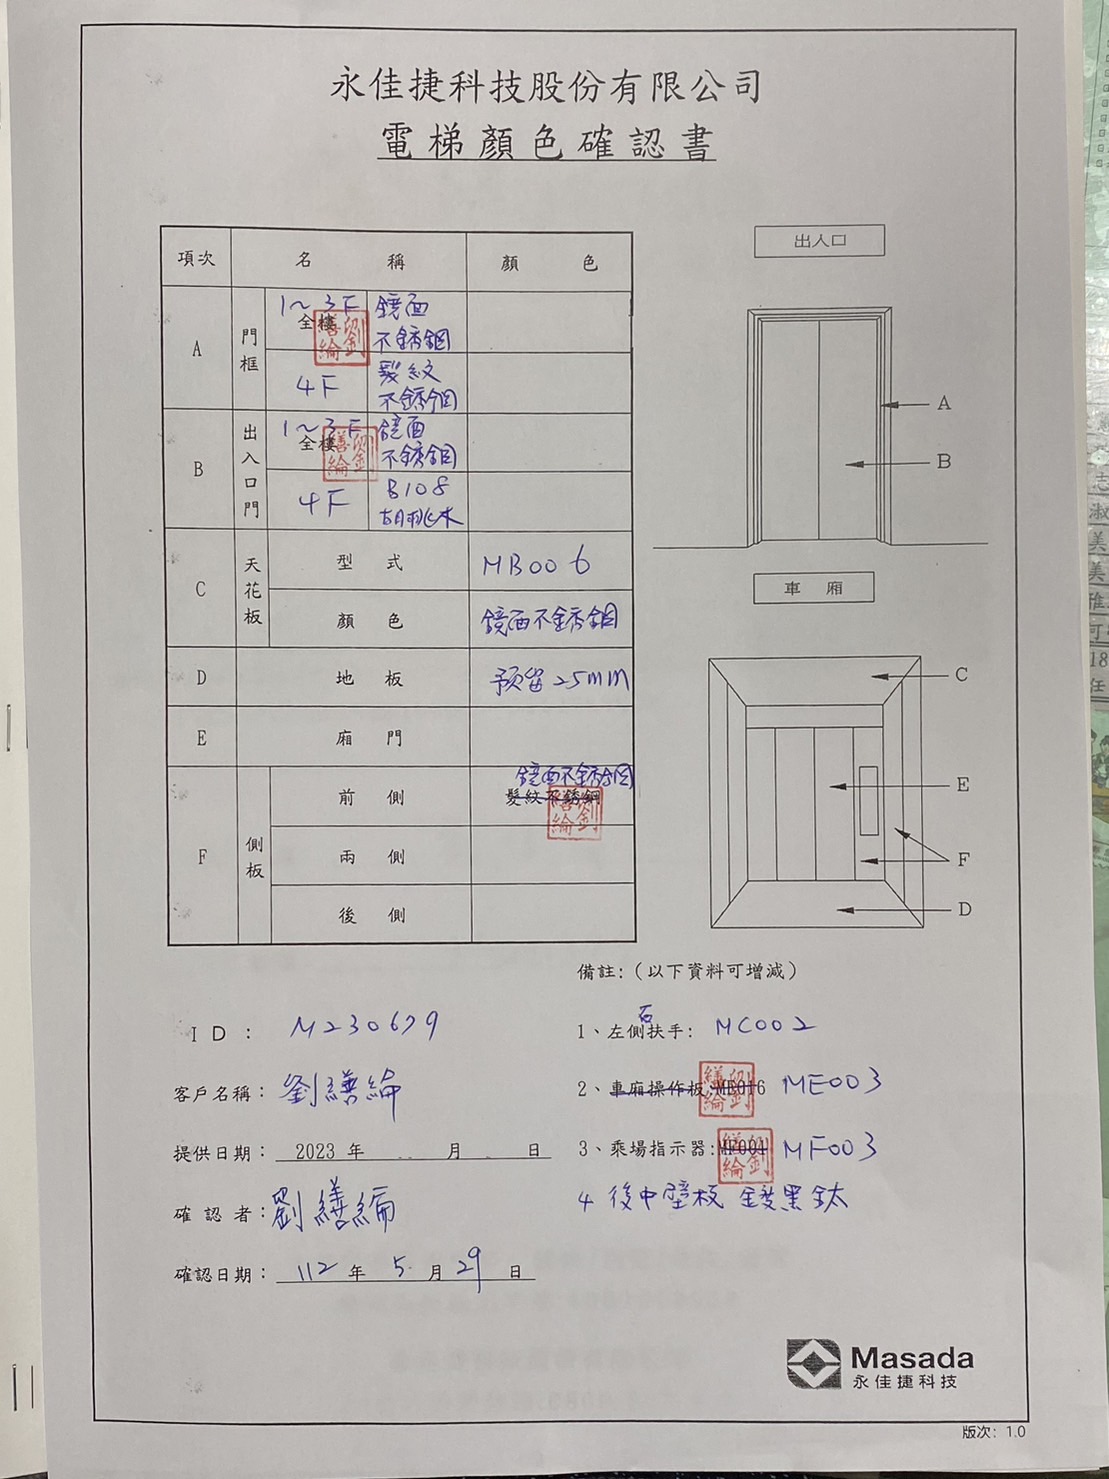 永佳捷科技股份有限公司
電梯顏色確認書
項次 名稱 顏色
A 門框 1～3F 全樓 鏡面不銹鋼
4F 髮紋不銹鋼
B 出入口門 1～3F 全樓 鏡面不銹鋼
4F B108 胡桃木
C 天花板 型式 MB006
顏色 鏡面不銹鋼
D 地板 預留25mm
E 廂門
F 側板 前側 鏡面不銹鋼 髮紋不銹鋼
兩側
後側
出入口
A
B
車廂
C
E
F
D
備註:（以下資料可增減）
ID： M230679
1、左側右扶手: MC002
客戶名稱： 劉繕綸
2、車廂操作板:ME016 ME003
提供日期： 2023 年 月 日
3、乘場指示器:MF001 MF003
確認者： 劉繕綸
4 後中壁板 鏡黑鈦
確認日期： 112 年 5 月 29 日
Masada
永佳捷科技
版次：1.0